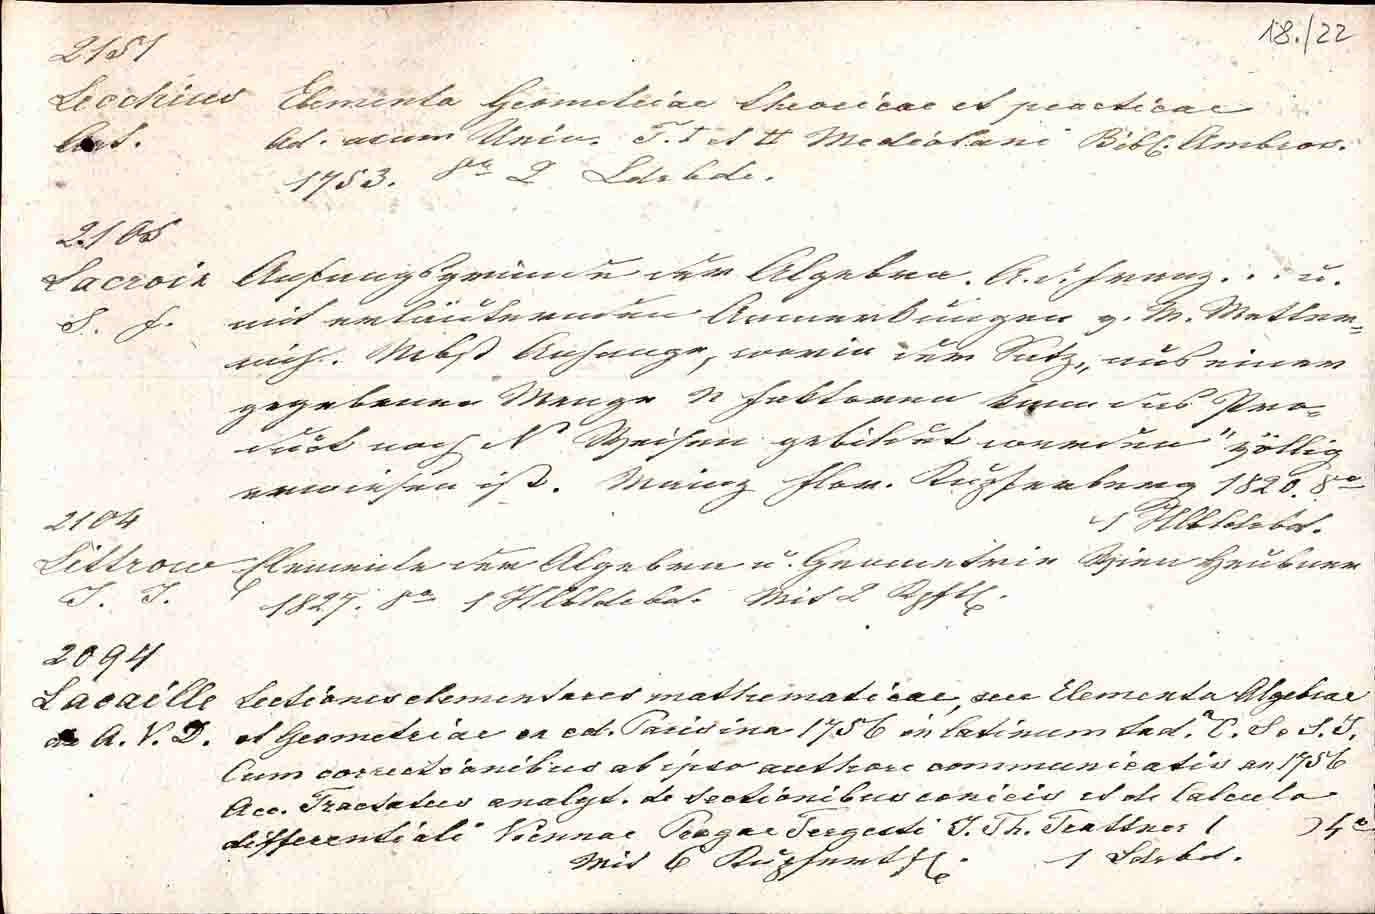 18./22
2151
Lecchius Elementa Geometriae theoricae et practicae
Ant. ad. usum Univ. T. I et II Mediolani Bibl. Ambros.
1753. 8° 2 Ldrbde.
2105
Lacroix Anfangsgründe der Algebra. A. d. Franz. . . u.
S. F. mit erläuternden Anmerkungen v. M. Metter=
nich. Nebst Anhange, worin der Satz „aus einer
gegebenen Menge n Faktoren kann das Pro-
dukt nach N Weisen gebildet werden" völlig
erwiesen ist. Mainz Flor. Kupferberg 1820. 8°
1 Hlbldrbd.
2104
Littrow Elemente der Algebra u. Geometrie Wien Heubner
J. J. 1827. 8° 1 Hlbldrbd. Mit 2 Kpftfl.
2094
Lacaille Lectiones elementares mathematicae, seu Elementa Algebrae
de A. V. D. et Geometriae ex ed. Parisina 1756 in latinum trad. a C. S. e S. J.
Cum correctionibus ab ipso authore communicatis an 1756
Acc. Tractatus analyt. de sectionibus conicis et de Calculo
differentiali Viennae Pragae Tergesti J. Th. Trattner ( ) 4°
Mit 6 Kupfertfl. 1 Ldrbd.